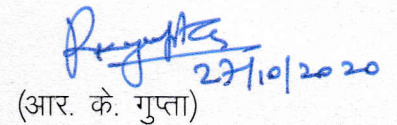 27/10/2020
(आर. के. गुप्ता)